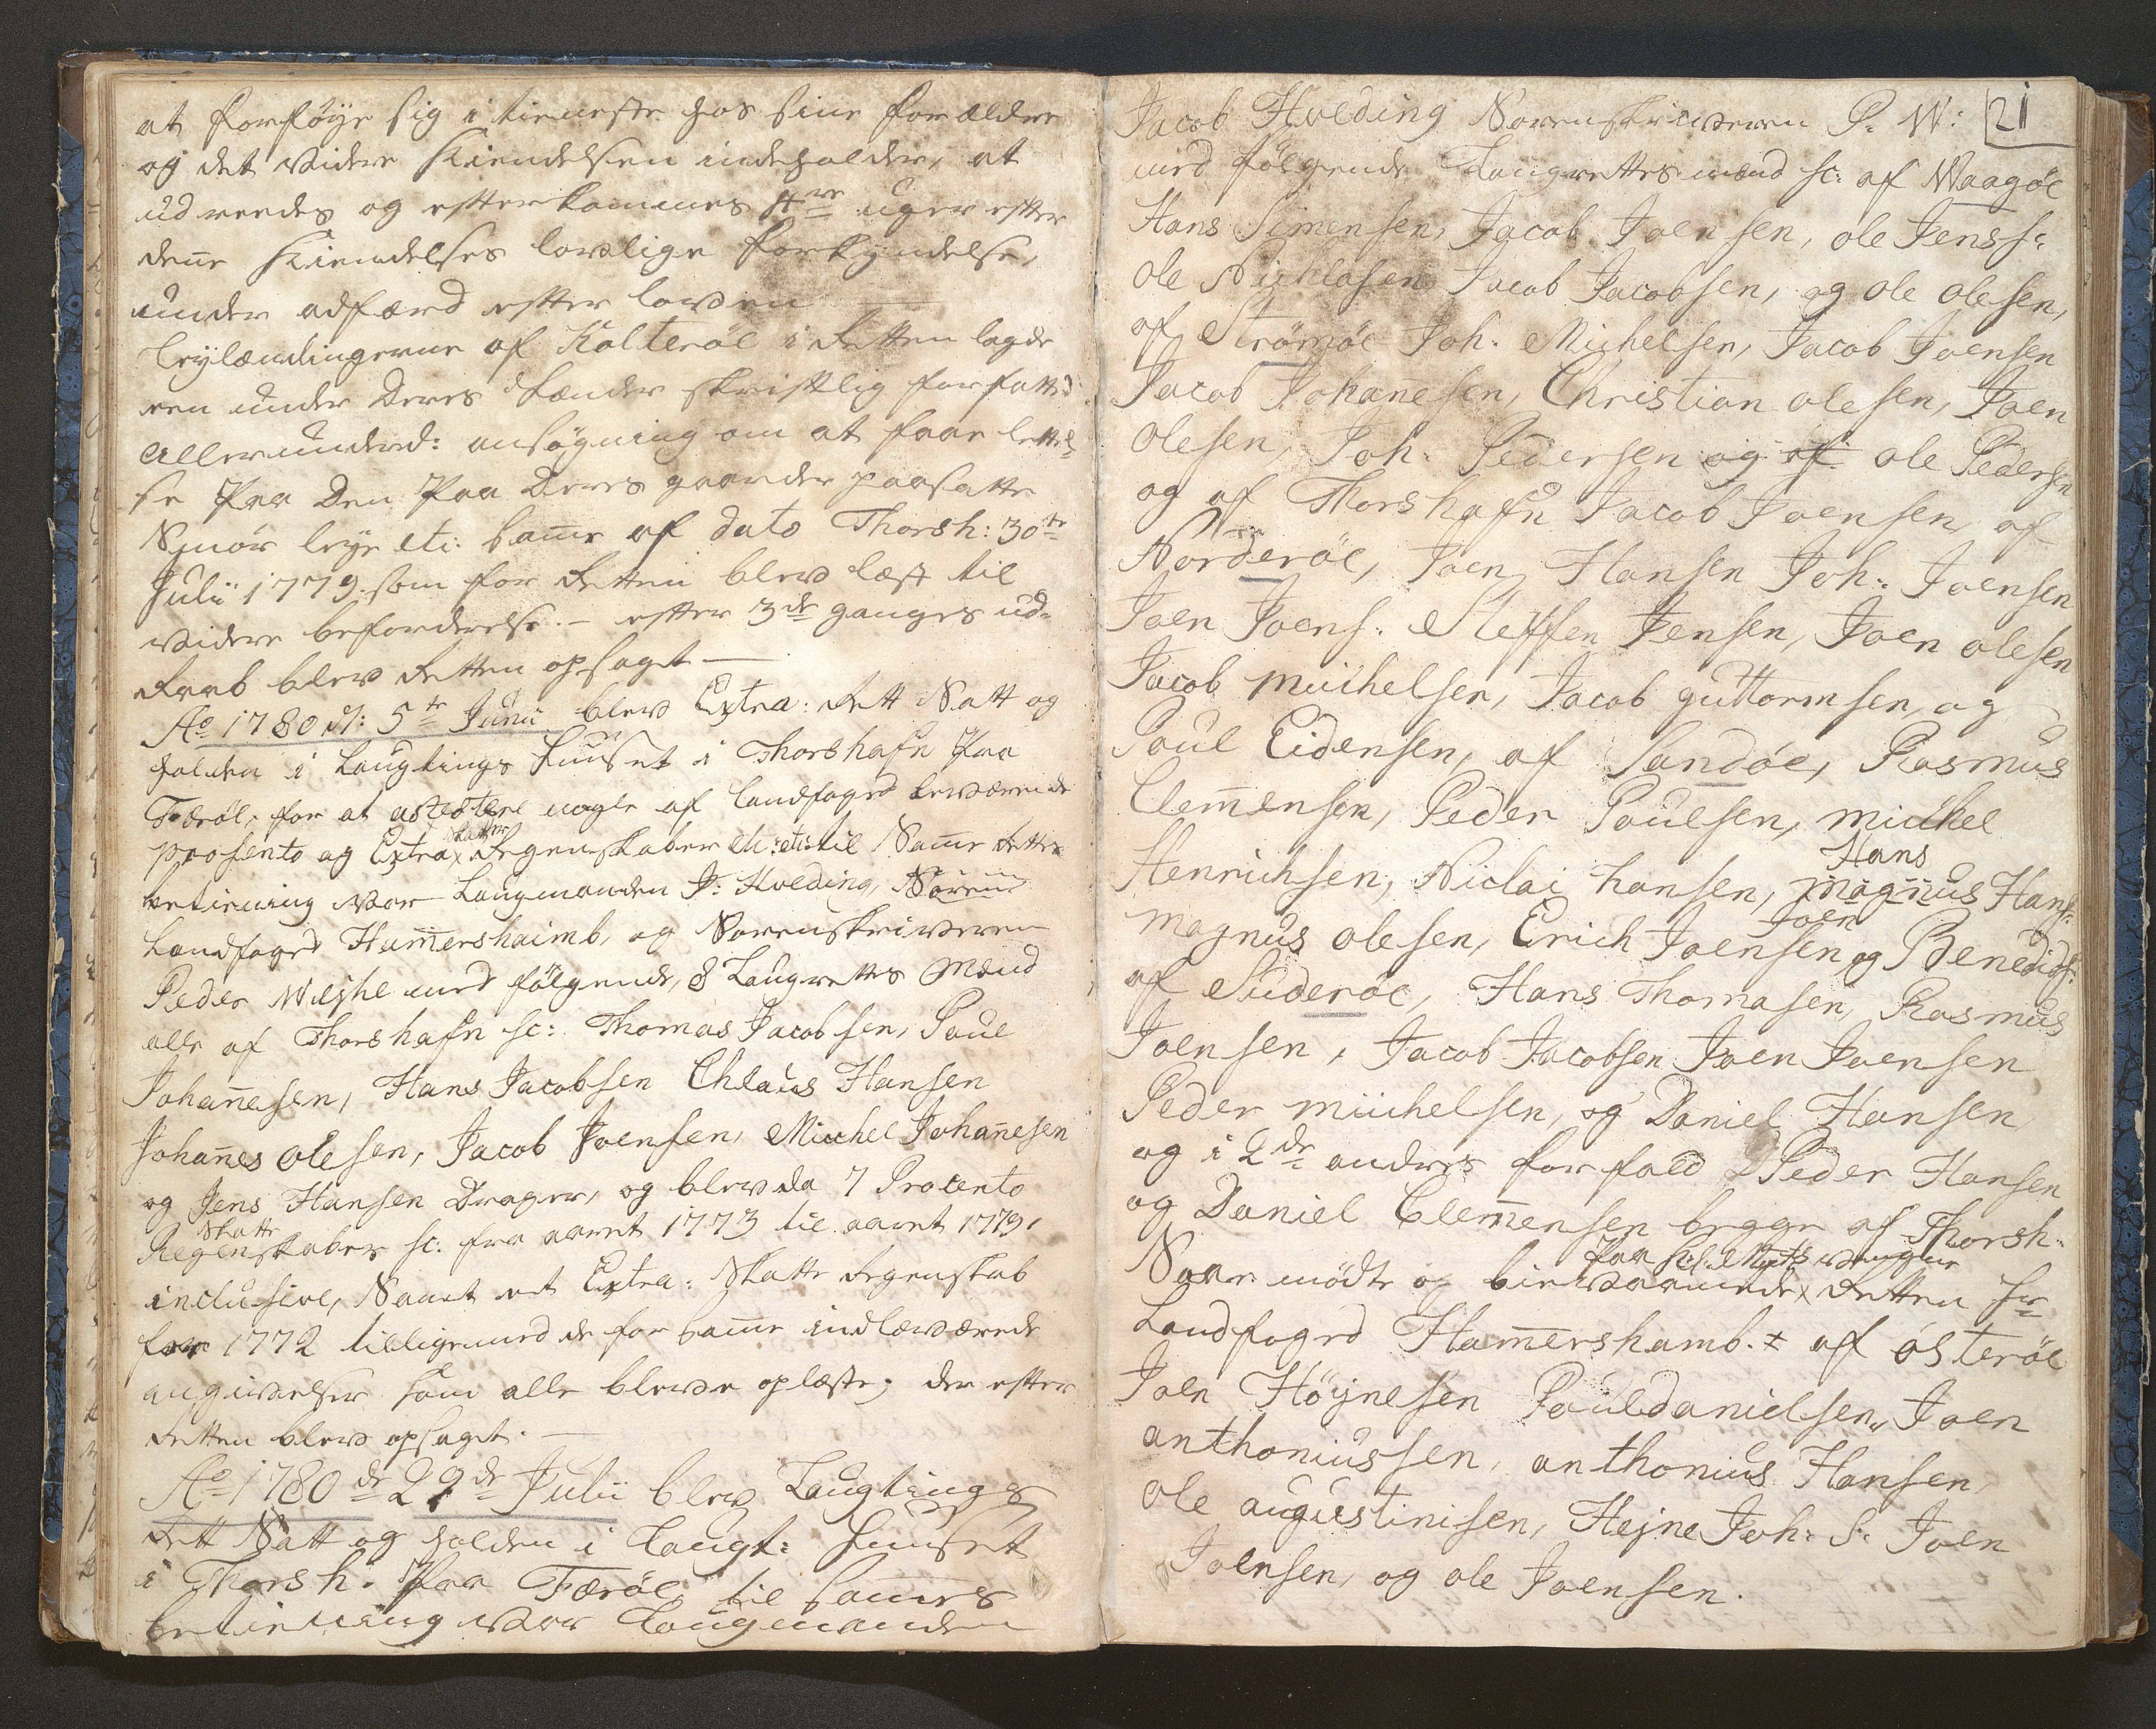 at forføÿe sig i tieneste hos sine forældre
og det videre Kiendelsen indeholder, at
udreedes og efterkommes 4re uger efter
deñe Kiendelses lovlige forkyndelse,
under adfærd efter loven
leÿlændingerne af Kolterøe i Retten lagde
een under Deres Hænder skriftlig forfatted
allerunderd: ansøgning om at faae lettel¬
se paa Den paa Deres gaarder paasatte
Smør leÿe etc: same af dato Thorsh: 30te
Julii 1779. som for Retten blev læst til
videre befordrelse. – efter 3de ganges ud¬
Raab blev Retten ophæget —
Ao 1780 d: 5te Junii blev Extra: Rett Satt og
holden i Laugtings Huuset i Thorshafn paa
Færøe, for at astestere nogle af landfoged leverende
prosento og Extra x Skatte Regenskaber etc: etc: til Same Rettes
betiening var Laugmanden J: Hveding, Søren
Landfoged Ham̃ershaimb, og Sorenskriveren
Peder Weÿhe med følgende, 8 Laugrettes Mænd
alle af Thorshafn sc: Thomas Jacobsen, Poul
Johañesen, Hans Jacobsen Chlaus Hansen
Johañes olesen, Jacob Joensen, Michel Johañesen
og Jens Hansen Drager, og blev da 7 Procento
Skatte
Regenskaber sc: fra aaret 1773 til aaret 1779,
inclusive, Samt et Extra: Skatte Regenskab
for 1772 tilligemed de for same indleverede
angivelser som alle bleve oplæste; der efter
Retten blev ophæget. —
Ao 1780 de 29de Julii blev Laugtings
Rett Satt og holden i Laugt: Huuset
i Thorsh. paa Færøe, til sames
betiening var Laugmanden
21
Jacob Hveding Sorenskriveren P. W:
med følgende Laugrettes mænd sc: af Waagøe
Hans Simensen, Jacob Joensen, ole Jenss:
ole Nichlasen Jacob Jacobsen, og ole olesen,
af Strømøe Joh: Michelsen, Jacob Joensen
Jacob Johañesen, Christian olesen, Joen
olesen, Joh: Pedersen og af ole Pedersen
og af Thorshafn Jacob Joensen af
Norderøe, Joen Hansen Joh: Joensen
Joen Joens: Steffen Jensen, Joen olesen
Jacob Michelsen, Jacob guttormsen, og
Poul Eidensen, af Sandøe, Rasmus
Clem̃ensen, Peder Poulsen, michel
Hans
Henrichsen, Niclai hansen, magnus Hans:
Joen
magnus olesen, Erich Joensen og Benedids:
af Suderøe, Hans Thomasen, Rasmus
Joensen, Jacob Jacobsen Joen Joensen
Peder michelsen, og Daniel Hansen,
og i 2de andres forfald Peder Hansen
og Daniel Clem̃ensen begge af Thorsh.
paa Hs: Mayts: vegne
Saa mødte og bievaanede x Retten Hr
Landfoged Ham̃ershamb. x af østerøe
Joen Høÿnesen Poul danielsen, Joen
anthoniussen, anthonius Hansen,
ole augustinisen, Hejne Joh: S. Joen
Joensen, og ole Joensen.